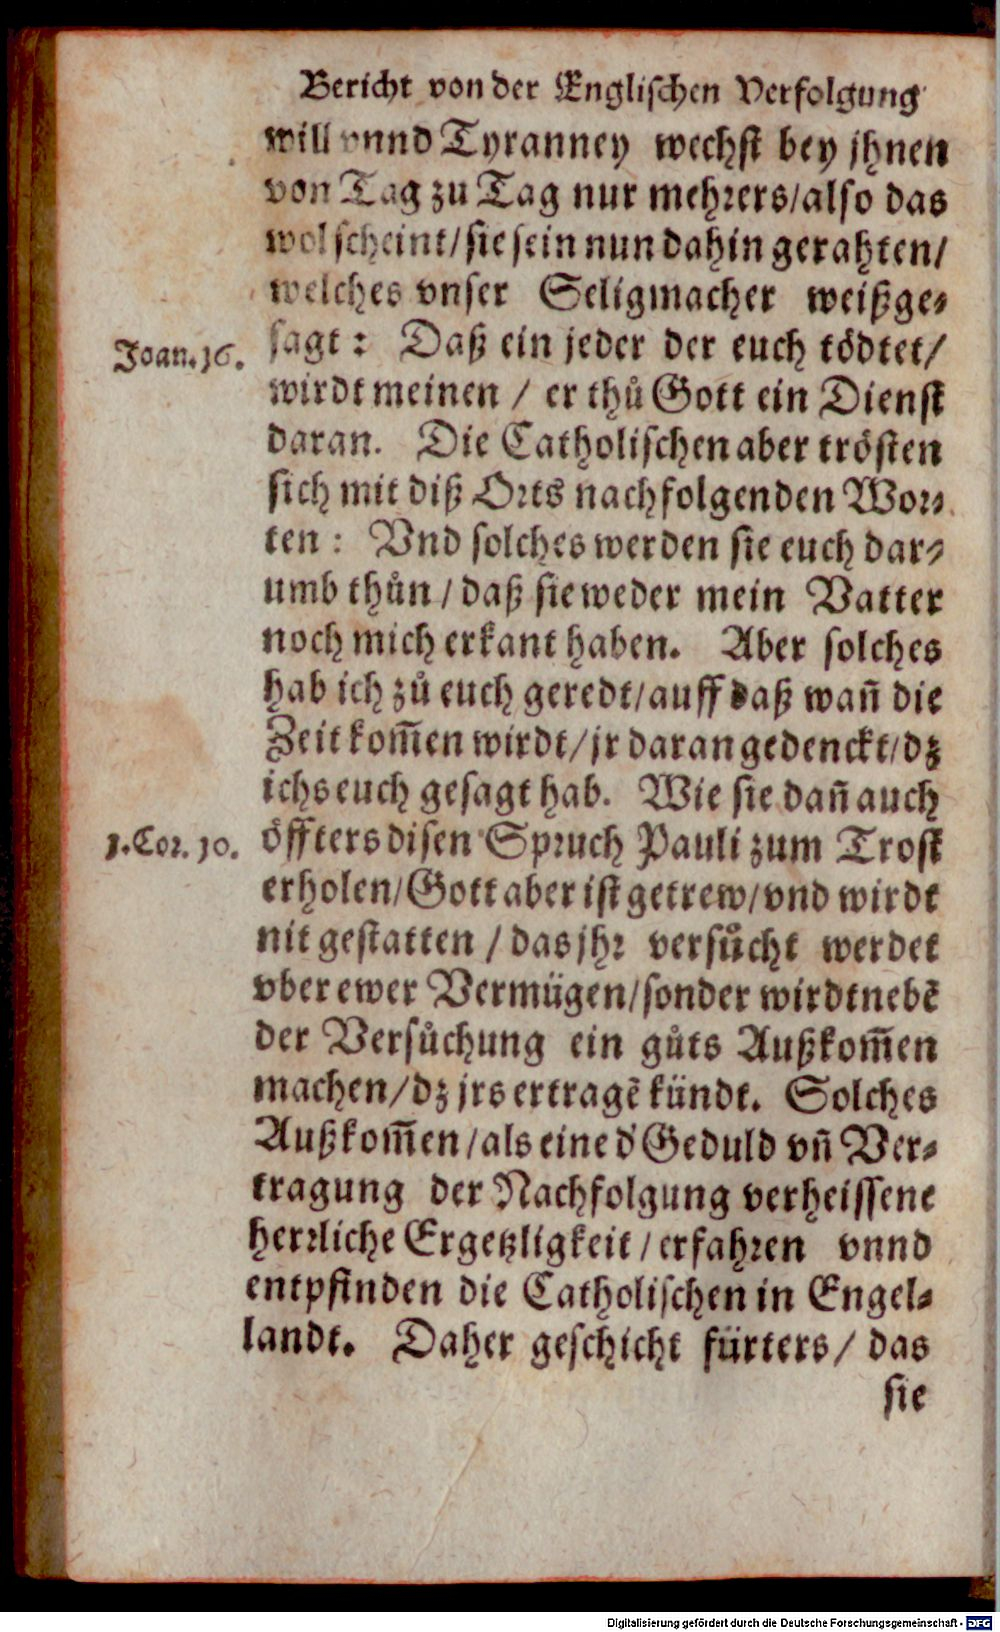 Bericht von der Englischen Verfolgung
will vnnd Tyranney wechst bey jhnen
von Tag zu Tag nur mehrers/also das
wol scheint/sie sein nun dahin gerahten/
welches vnser Seligmacher weißge-
Joan. 16.
sagt: Daß ein jeder der euch tödtet/
wirdt meinen / er thů Gott ein Dienst
daran. Die Catholischen aber trösten
sich mit diß Orts nachfolgenden Wor-
ten: Vnd solches werden sie euch dar-
umb thůn/daß sie weder mein Vatter
noch mich erkant haben. Aber solches
hab ich zů euch geredt/auff daß wañ die
Zeit kom̃en wirdt/jr daran gedenckt/dz
ichs euch gesagt hab. Wie sie dañ auch
1. Cor. 10.
öffters disen Spruch Pauli zum Trost
erholen/Gott aber ist getrew/vnd wirdt
nit gestatten / das jhr versůcht werdet
vber ewer Vermügen/sonder wirdt nebẽ
der Versůchung ein gůts Außkom̃en
machen/dz jrs ertragẽ kündt. Solches
Außkom̃en/als eine d' Geduld vñ Ver-
tragung der Nachfolgung verheissene
herrliche Ergetzligkeit/erfahren vnnd
entpfinden die Catholischen in Engel-
landt. Daher geschicht fürters/ das
sie
Digitalisierung gefördert durch die Deutsche Forschungsgemeinschaft - DFG